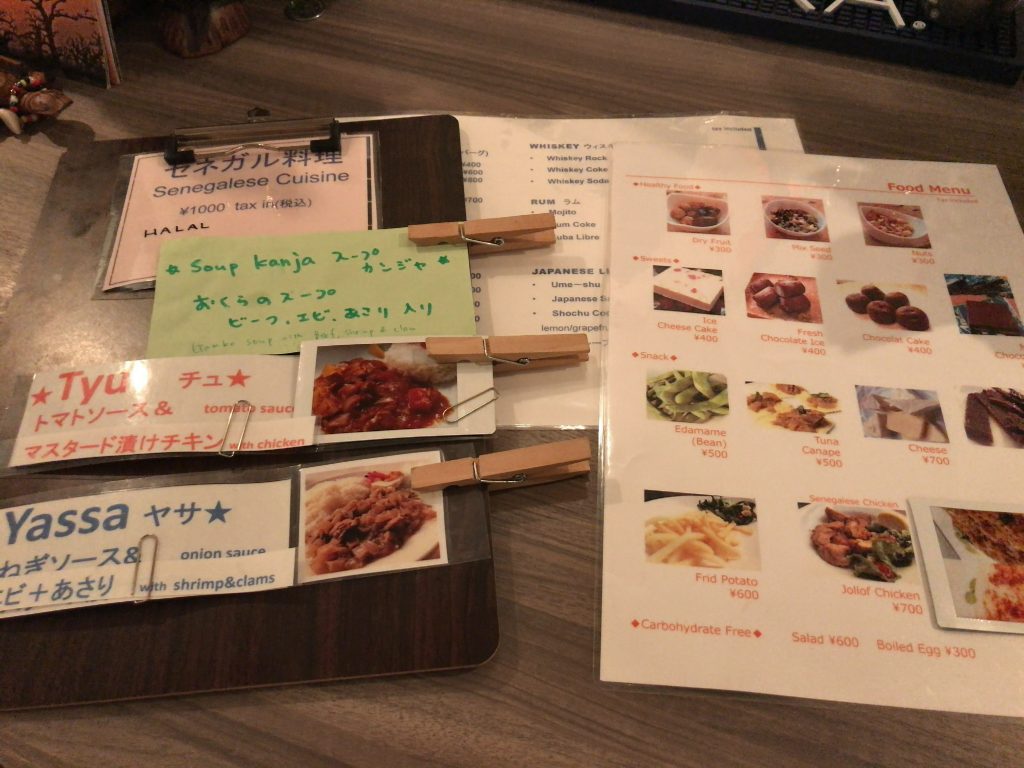 セネガル料理
Senegalese Cuisine
¥1000 tax in(税込)
HALAL
★ Soup Kanja スープ
カンジャ ★
おくらのスープ
ビーフ、エビ、あさり 入り
soup with Beef, shrimp & clam
★Tyu チュ★
トマトソース& tomato sauce
マスタード漬けチキン with chicken
Yassa ヤサ★
ねぎソース& onion sauce
ビ+あさり with shrimp&clams
バーグ)
¥400
¥600
¥800
¥700
tax included
WHISKEY ウィスキ
• Whiskey Rock
• Whiskey Coke
• Whiskey Soda
RUM ラム
• Mojito
um Coke
uba Libre
JAPANESE LI
• Ume-shu
• Japanese Sa
• Shochu Coc
lemon/grapefru
Food Menu
Tax Included
◆Healthy Food◆
Dry Fruit
¥300
Mix Seed
¥300
Nuts
¥300
◆Sweets◆
Ice
Cheese Cake
¥400
Fresh
Chocolate Ice
¥400
Chocolat Cake
¥400
◆Snack◆
Edamame
(Bean)
¥500
Tuna
Canape
¥500
Cheese
¥700
Frid Potato
¥600
Senegalese Chicken
Jollof Chicken
¥700
◆Carbohydrate Free◆ Salad ¥600 Boiled Egg ¥300